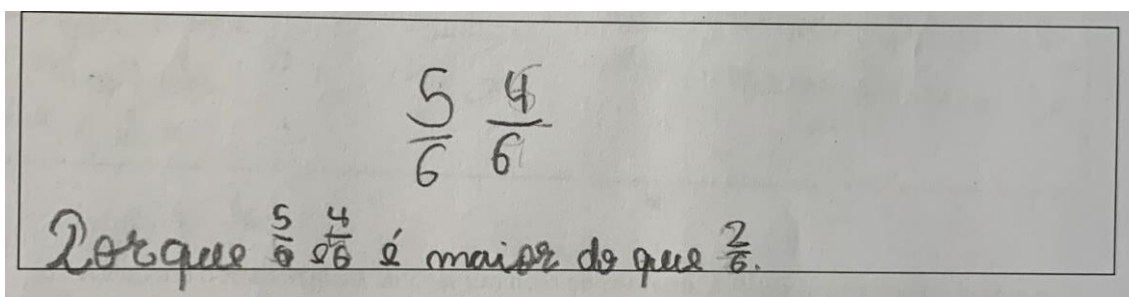 5/6 4/6
Porque 5/6 e 4/6 é maior do que 2/6.